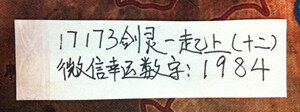 17173剑灵一起上(十二)
微信幸运数字:1984